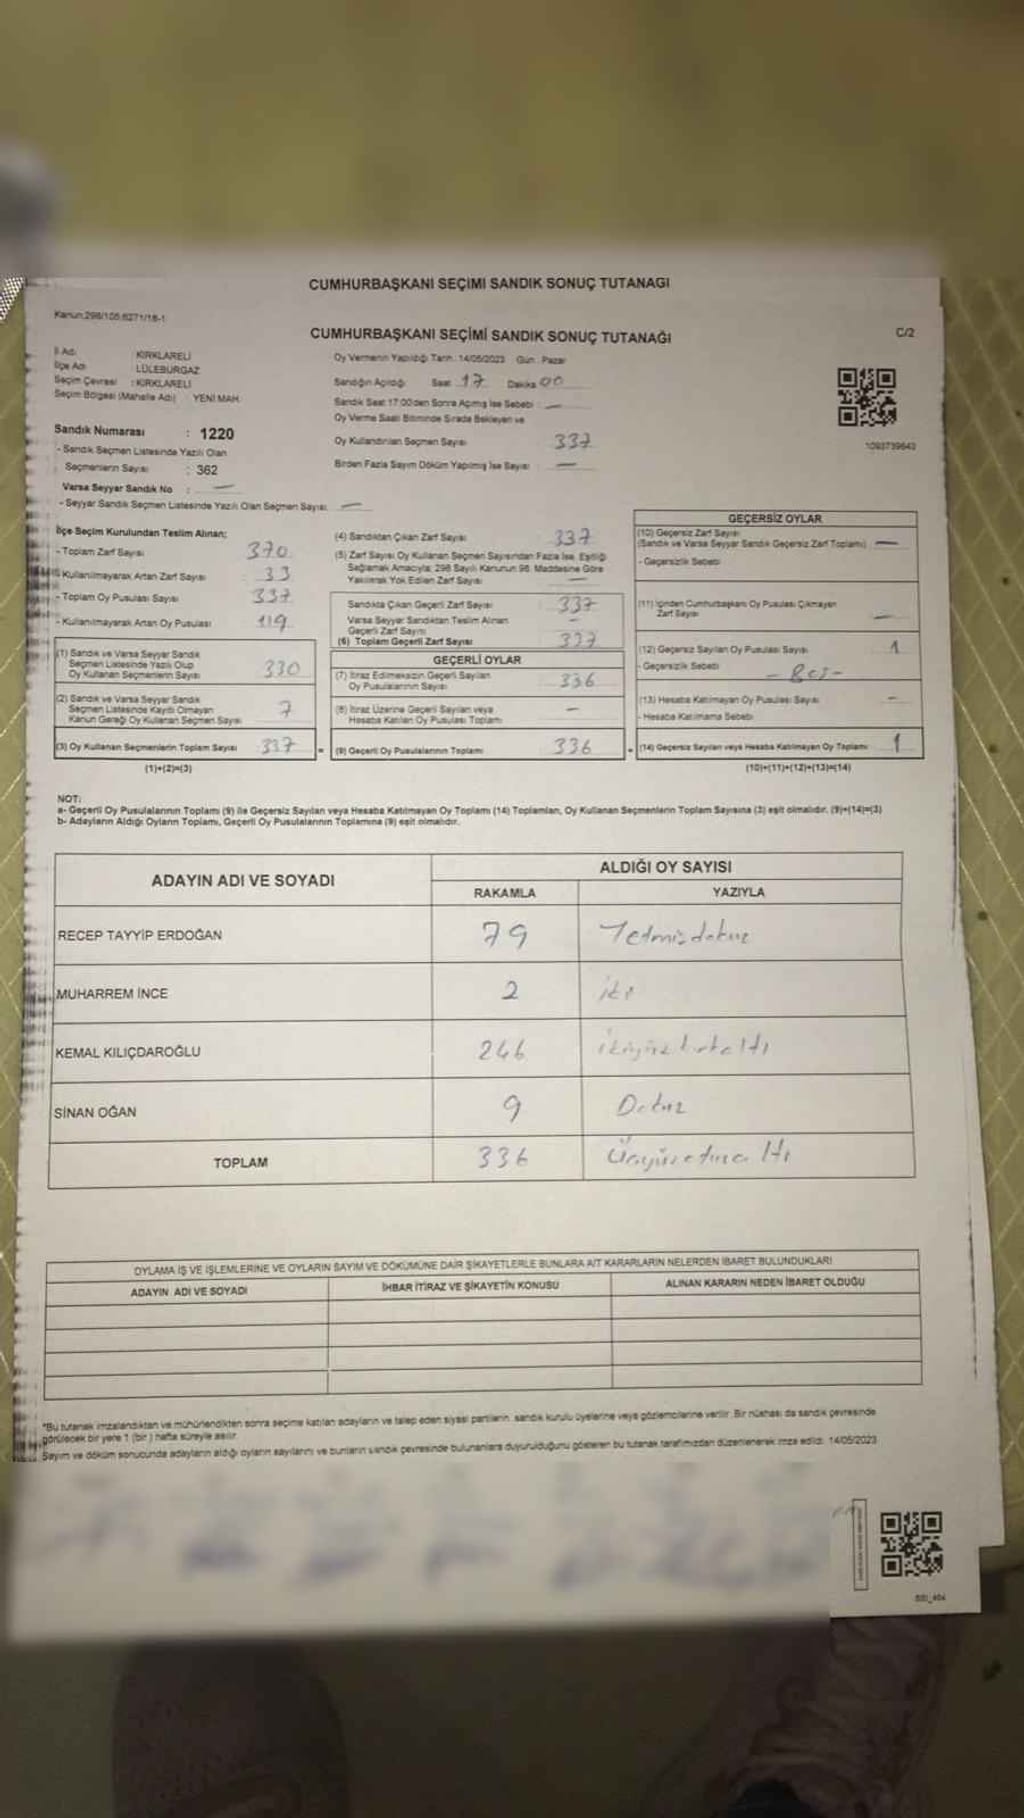 CUMHURBAŞKANI SEÇİMİ SANDIK SONUÇ TUTANAĞI
Kanun:298/105,6271/18-1
CUMHURBAŞKANI SEÇİMİ SANDIK SONUÇ TUTANAĞI
C/2
İl Adı : KIRKLARELİ
İlçe Adı : LÜLEBURGAZ
Seçim Çevresi : KIRKLARELİ
Seçim Bölgesi (Mahalle Adı) YENİ MAH.
Sandık Numarası : 1220
- Sandık Seçmen Listesinde Yazılı Olan
Seçmenlerin Sayısı : 362
Varsa Seyyar Sandık No : —
- Seyyar Sandık Seçmen Listesinde Yazılı Olan Seçmen Sayısı: —
Oy Vermenin Yapıldığı Tarih: 14/05/2023 Gün: Pazar
Sandığın Açıldığı Saat 17 Dakika 00
Sandık Saat 17:00'den Sonra Açılmış İse Sebebi : —
Oy Verme Saati Bitiminde Sırada Bekleyen ve
Oy Kullandırılan Seçmen Sayısı 337
Birden Fazla Sayım Döküm Yapılmış İse Sayısı : —
1093739643
İlçe Seçim Kurulundan Teslim Alınan;
- Toplam Zarf Sayısı 370
- Kullanılmayarak Artan Zarf Sayısı 33
- Toplam Oy Pusulası Sayısı 337
- Kullanılmayarak Artan Oy Pusulası 119
(1) Sandık ve Varsa Seyyar Sandık
Seçmen Listesinde Yazılı Olup
Oy Kullanan Seçmenlerin Sayısı 330
(2) Sandık ve Varsa Seyyar Sandık
Seçmen Listesinde Kayıtlı Olmayan
Kanun Gereği Oy Kullanan Seçmen Sayısı 7
(3) Oy Kullanan Seçmenlerin Toplam Sayısı 337 =
(1)+(2)=(3)
(4) Sandıktan Çıkan Zarf Sayısı 337
(5) Zarf Sayısı Oy Kullanan Seçmen Sayısından Fazla İse, Eşitliği
Sağlamak Amacıyla; 298 Sayılı Kanunun 98. Maddesine Göre
Yakılarak Yok Edilen Zarf Sayısı —
Sandıkta Çıkan Geçerli Zarf Sayısı 337
Varsa Seyyar Sandıktan Teslim Alınan
Geçerli Zarf Sayısı —
(6) Toplam Geçerli Zarf Sayısı 337
GEÇERLİ OYLAR
(7) İtiraz Edilmeksizin Geçerli Sayılan
Oy Pusulalarının Sayısı 336
(8) İtiraz Üzerine Geçerli Sayılan veya
Hesaba Katılan Oy Pusulası Toplamı —
(9) Geçerli Oy Pusulalarının Toplamı 336 +
GEÇERSİZ OYLAR
(10) Geçersiz Zarf Sayısı
(Sandık ve Varsa Seyyar Sandık Geçersiz Zarf Toplamı) —
- Geçersizlik Sebebi
(11) İçinden Cumhurbaşkanı Oy Pusulası Çıkmayan
Zarf Sayısı —
(12) Geçersiz Sayılan Oy Pusulası Sayısı 1
- Geçersizlik Sebebi
(13) Hesaba Katılmayan Oy Pusulası Sayısı —
- Hesaba Katılmama Sebebi
(14) Geçersiz Sayılan veya Hesaba Katılmayan Oy Toplamı 1
(10)+(11)+(12)+(13)=(14)
NOT:
a- Geçerli Oy Pusulalarının Toplamı (9) ile Geçersiz Sayılan veya Hesaba Katılmayan Oy Toplamı (14) Toplamları, Oy Kullanan Seçmenlerin Toplam Sayısına (3) eşit olmalıdır. (9)+(14)=(3)
b- Adayların Aldığı Oyların Toplamı, Geçerli Oy Pusulalarının Toplamına (9) eşit olmalıdır.
ADAYIN ADI VE SOYADI
ALDIĞI OY SAYISI
RAKAMLA YAZIYLA
RECEP TAYYİP ERDOĞAN 79 Yetmişdokuz
MUHARREM İNCE 2 iki
KEMAL KILIÇDAROĞLU 246 ikiyüzkırkaltı
SİNAN OĞAN 9 Dokuz
TOPLAM 336 Üçyüzotuzaltı
OYLAMA İŞ VE İŞLEMLERİNE VE OYLARIN SAYIM VE DÖKÜMÜNE DAİR ŞİKAYETLERLE BUNLARA AİT KARARLARIN NELERDEN İBARET BULUNDUKLARI
ADAYIN ADI VE SOYADI İHBAR İTİRAZ VE ŞİKAYETİN KONUSU ALINAN KARARIN NEDEN İBARET OLDUĞU
*Bu tutanak imzalandıktan ve mühürlendikten sonra seçime katılan adayların ve talep eden siyasi partilerin, sandık kurulu üyelerine veya gözlemcilerine verilir. Bir nüshası da sandık çevresinde
görülecek bir yere 1 (bir) hafta süreyle asılır.
Sayım ve döküm sonucunda adayların aldığı oyların sayılarını ve bunların sandık çevresinde bulunanlara duyurulduğunu gösteren bu tutanak tarafımızdan düzenlenerek imza edildi. 14/05/2023